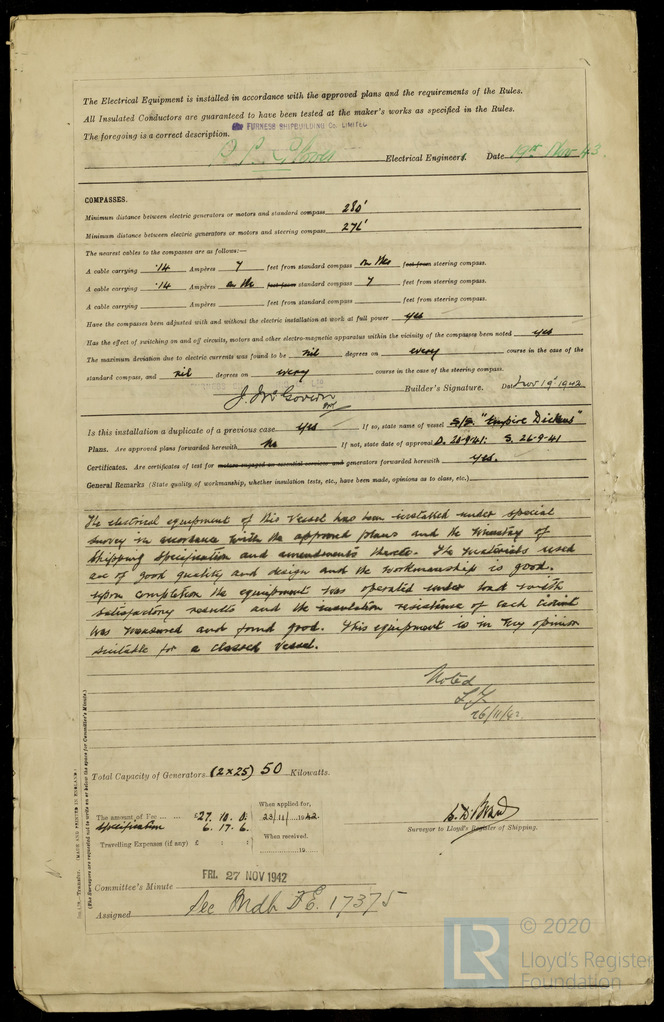 The Electrical Equipment is installed in accordance with the approved plans and the requirements of the Rules.
All Insulated Conductors are guaranteed to have been tested at the maker's works as specified in the Rules.
The foregoing is a correct description.
FURNESS SHIPBUILDING CO. LIMITED
Electrical Engineers. Date 19th Nov 43
COMPASSES.
Minimum distance between electric generators or motors and standard compass 280'
Minimum distance between electric generators or motors and steering compass 276'
The nearest cables to the compasses are as follows:—
A cable carrying .14 Ampères 7 feet from standard compass on the feet from steering compass.
A cable carrying .14 Ampères on the feet from standard compass 7 feet from steering compass.
A cable carrying Ampères feet from standard compass feet from steering compass.
Have the compasses been adjusted with and without the electric installation at work at full power yes
Has the effect of switching on and off circuits, motors and other electro-magnetic apparatus within the vicinity of the compasses been noted yes
The maximum deviation due to electric currents was found to be nil degrees on every course in the case of the
standard compass, and nil degrees on every course in the case of the steering compass.
J. McGovern Builder's Signature. Date Nov 19th 1942
Is this installation a duplicate of a previous case yes If so, state name of vessel S/S. "Empire Dickens"
Plans. Are approved plans forwarded herewith No If not, state date of approval D. 26·9·41: S. 26·9·41
Certificates. Are certificates of test for motors engaged on essential services and generators forwarded herewith yes.
General Remarks (State quality of workmanship, whether insulation tests, etc., have been made, opinions as to class, etc.)
The electrical equipment of this vessel has been installed under special
survey in accordance with the approved plans and the Ministry of
Shipping Specification and amendments thereto. The materials used
are of good quality and design and the workmanship is good.
Upon completion the equipment was operated under load with
satisfactory results and the insulation resistance of each circuit
was measured and found good. This equipment is in my opinion
suitable for a classed vessel.
Noted
26/11/42
Total Capacity of Generators (2 x 25) 50 Kilowatts.
The amount of Fee ... £27. 10. 0. When applied for, 23/11/1942.
Specification 6. 17. 6.
Travelling Expenses (if any) £ : : When received, 19
Surveyor to Lloyd's Register of Shipping.
FRI. 27 NOV 1942
Committee's Minute
Assigned See Mdb F.E. 17375
(MADE AND PRINTED IN ENGLAND.)
(The Surveyors are requested not to write on or below the space for Committee's Minute.)
LR
© 2020
Lloyd's Register
Foundation